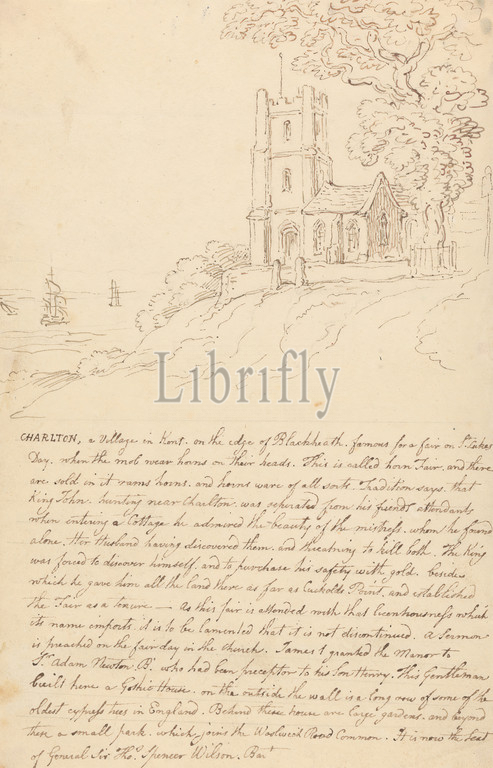 Librifly
CHARLTON, a Village in Kent. on the edge of Blackheath. famous for a fair on St Lukes
Day. when the mob wear horns on their heads. This is called horn Fair. and there
are sold in it rams horns. and horns ware of all sorts. Tradition says. that
King John. hunting near Charlton. was separated from his friends & attendants
when entering a Cottage he admired the beauty of the mistress. whom he found
alone. Her Husband having discovered them. and threatning to kill both. The King
was forced to discover himself. and to purchase his safety with gold. besides
which he gave him all the land there as far as Cuckolds Point. and established
the Fair as a tenure — As this fair is attended with that licentiousness which
its name imports. it is to be lamented that it is not discontinued. A Sermon
is preached on the fair day in the church. James 1 granted the Manor to
Sr Adam Newton. Bt. who had been preceptor to his Son Henry. This Gentleman
built here a Gothic House. on the outside the wall is a long row of some of the
oldest cypress trees in England. Behind these house are large gardens. and beyond
them a small park. which joins the Woolwich Road Common. It is now the Seat
of General Sir Thos. Spencer Wilson. Bart